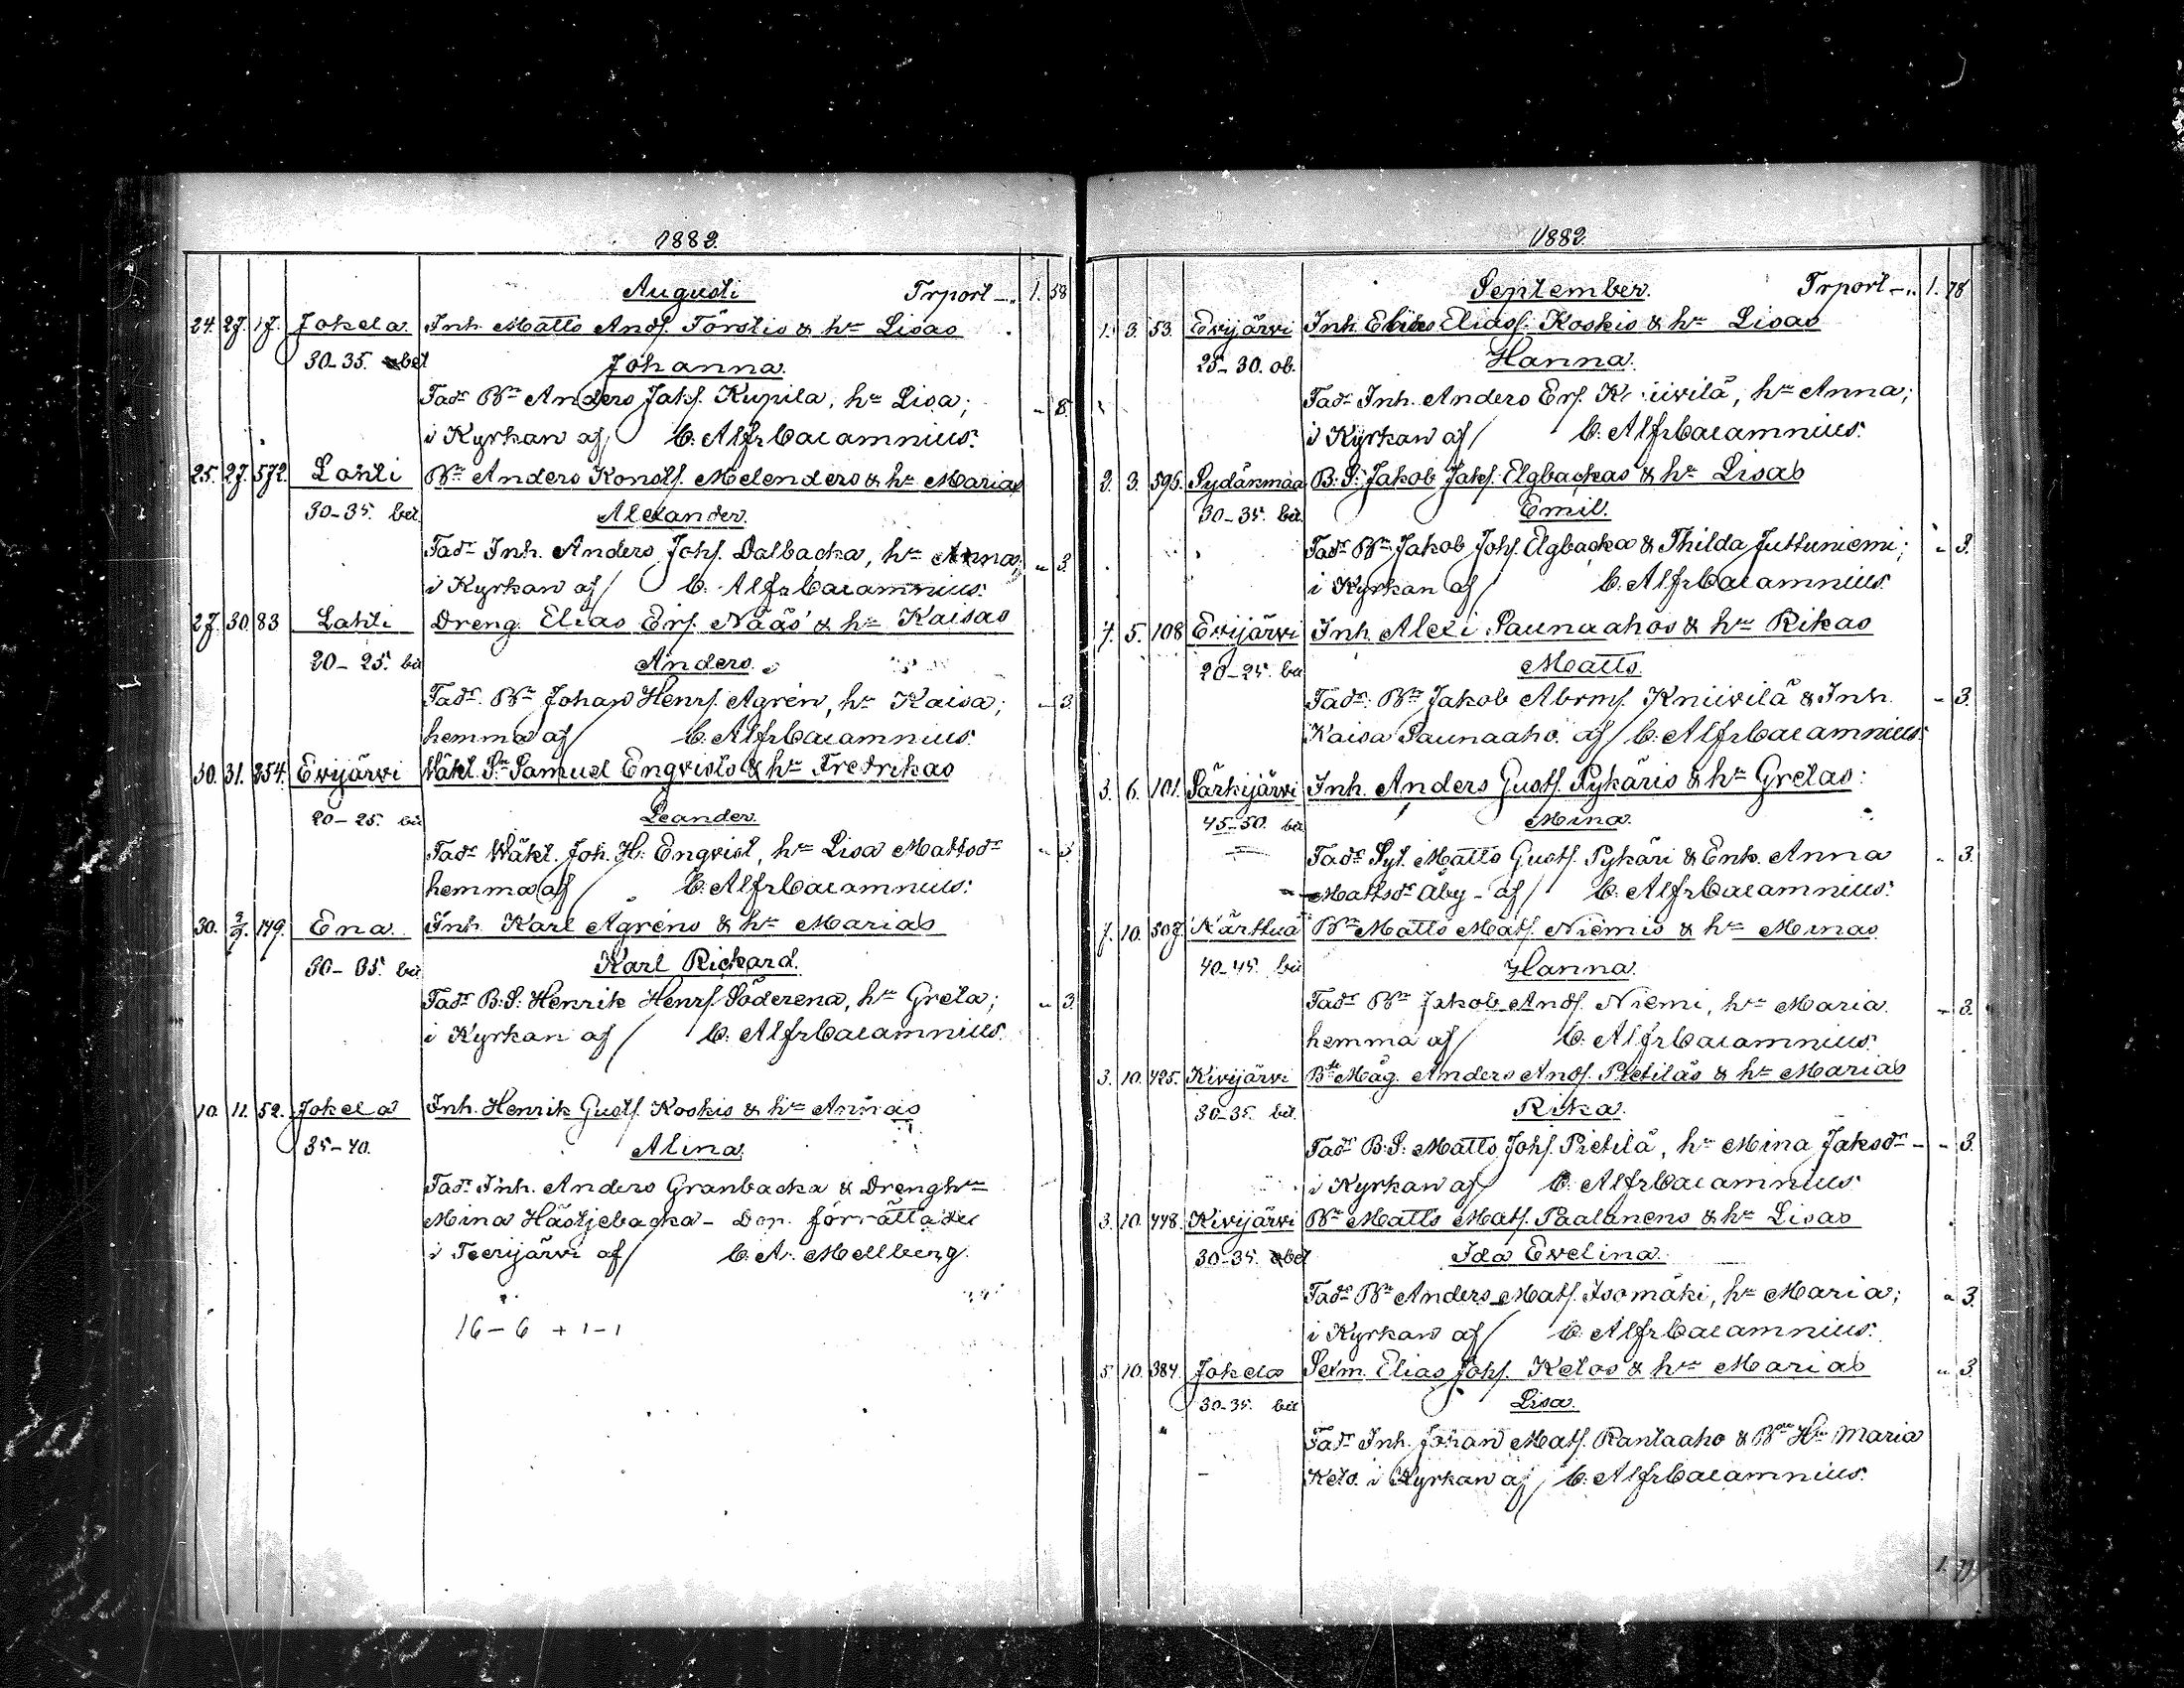 1882.
Augusti Trport -„ 1. 58
24. 27. 17. Jokela Inh. Matts Andf. Törstis & hu Lisas
30-35. bet Johanna.
Fadr Bn Anders Jakf. Kupila, hu Lisa; „ 8.
i Kyrkan af C. Alfr Cacamnius.
25. 27. 572. Lahti Bn Anders Konstf. Melenders & hu Marias
30-35. bet. Alexander.
Fadr Inh. Anders Johf. Dalbacka, hu Anna; „ 3.
i Kyrkan af C. Alfr Cacamnius.
27. 30. 83 Lahti Dreng Elias Erf. Nääs & hu Kaisas
20-25. bet Anders.
Fadr Bn Johan Henrf. Agrén, hu Kaisa; „ 3.
hemma af C. Alfr Cacamnius.
30. 31. 354. Evijärvi Wäkt. Sn Samuel Engvists & hu Fredrikas
20-25. bet Leander.
Fadr Wäkt. Joh. H: Engvist, hu Lisa Mattsdr „ 3.
hemma af C. Alfr Cacamnius.
30. 3/9. 149. Ena. Inh. Karl Ågréns & hu Marias
30-35. bet Karl Rickard.
Fadr B: S: Henrik Henrf. Söderena, hu Greta; „ 3.
i Kyrkan af C. Alfr Cacamnius.
10. 11. 52. Jokela Inh. Henrik Gustf. Koskis & hu Annas
35-40. Alina.
Fadr Inh. Anders Granbacka & Drenghu
Mina Hästjebacka - Dop. förrättadt
i Teerijärvi af C. A. Mellberg.
16-6 + 1-1
1882.
September. Trport -„ 1. 78
1. 3. 53. Evijärvi Inh. Elias Eliasf. Koskis & hu Lisas
25-30. ob. Hanna.
Fadr Inh. Anders Erf. Kniivilä, hu Anna;
i Kyrkan af C. Alfr Cacamnius.
2. 3. 595. Sydänmaa B: S: Jakob Jakf. Elgbackas & hu Lisas
30-35. bet. Emil.
Fadr Bn Jakob Johf. Elgbacka & Thilda Juttuniemi; „ 3.
i Kyrkan af C. Alfr Cacamnius.
4. 5. 108 Evijärvi Inh. Alexi Saunaahos & hu Rikas
20-25. bet Matts.
Fadr Bn Jakob Abrmf. Kniivilä & Inh. „ 3.
Kaisa Saunaaho. af C. Alfr Cacamnius.
3. 6. 101. Särkijärvi Inh. Anders Gustf. Pykäris & hu Gretas:
45-50. bet Mina.
Fadr Syt. Matts Gustf. Pykäri & Enk. Anna „ 3.
Mattsdr Åby - af C. Alfr Cacamnius.
7. 10. 507. Kärttuä Bn Matts Matf. Niemis & hu Minas
40-45. bet Hanna.
Fadr Bn Jakob Andf. Niemi, hu Maria. „ 3.
hemma af C. Alfr Cacamnius.
3. 10. 425. Kivijärvi Bde Måg. Anders Andf. Pietiläs & hu Marias
30-35. bet. Rika.
Fadr B: S: Matts Johf. Pietilä, hu Mina Jaksdr - „ 3.
i Kyrkan af C. Alfr Cacamnius.
3. 10. 448. Kivijärvi Bn Matts Matf. Paalanens & hu Lisas
30-35. bet Ida Evelina.
Fadr Bn Anders Matf. Isomäki, hu Maria; „ 3.
i Kyrkan af C. Alfr Cacamnius.
5. 10. 384. Jokela Sexm. Elias Johf. Ketos & hu Marias „ 3.
30-35. bet Lisa.
Fadr Inh. Johan Matf. Rantaaho & Bn Hu Maria
Keto. i Kyrkan af C. Alfr Cacamnius.